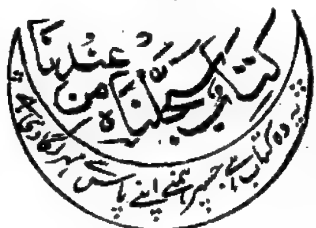 كتاب سجّلناه من عندنا
یہ وہ کتاب ہے جسپر ہمنے اپنے پاس سے مہر لگادی ہے